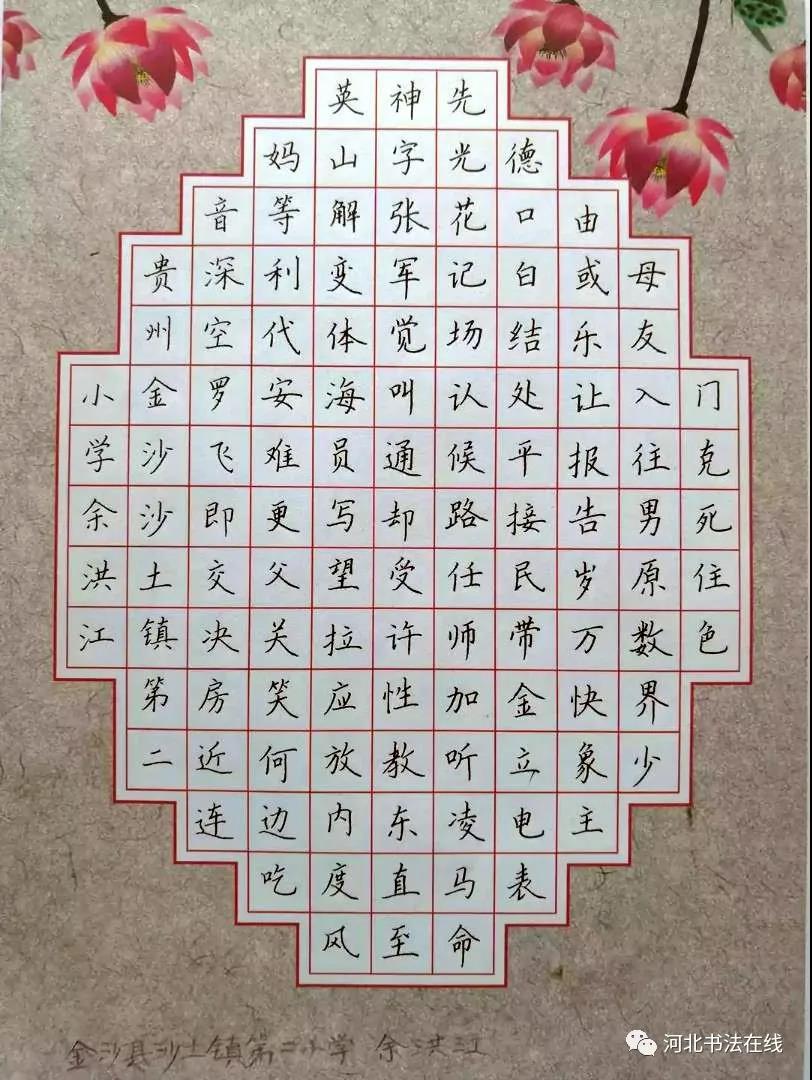 门克死住色
母友入往男原数界少
由或乐让报告岁万快象主
德口白结处平接民带金立电表
先光花记场认候路任师加听凌马命
神字张军觉叫通却受许性教东直至
英山解变体海员写望拉应放内度风
妈等利代安难更父关笑何边吃
音深空罗飞即交决房近连
贵州金沙沙土镇第二
小学余洪江
金沙县沙土镇第二小学 余洪江
河北书法在线